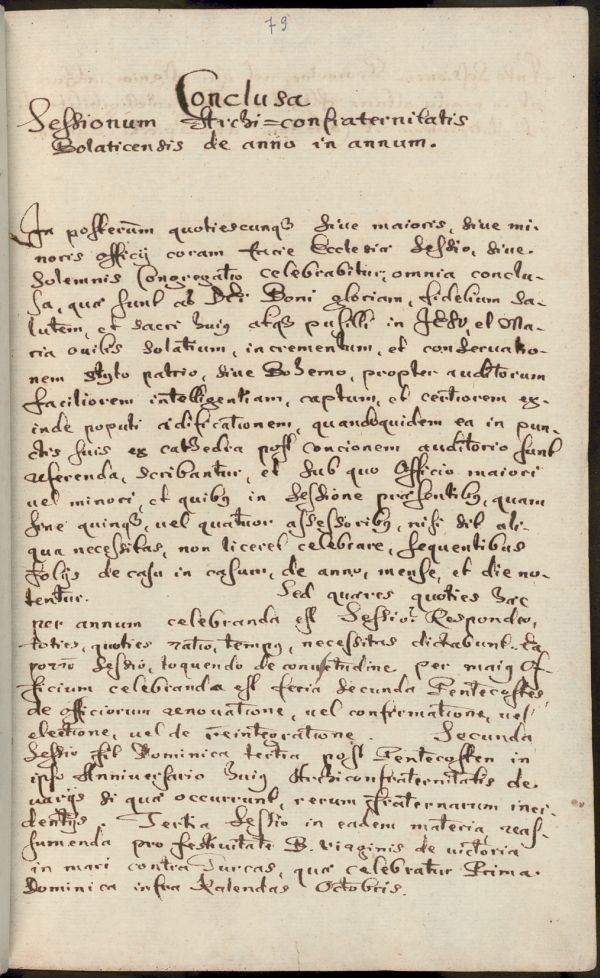 79
Conclusa
Sessionum Archi=confraternitatis
Bolaticensis de anno in annum.
In posterum quotiescunqʒ sive maioris, sive mi-
noris officij coram facie Ecclesiæ Sessio, sive
solemnis Congregatio celebrabitur, omnia conclu-
sa, quæ sunt ad Dei Boni gloriam, fidelium sa-
lutem, et sacri huiq atqʒ pusilli in Jesu, et Ma-
ria ovilis solatium, incrementum, et conservatio-
nem stylo patrio, sive Bohemo, propter auditorum
faciliorem intelligentiam, captum, et certiorem ex-
inde populi ædificationem, quandoquidem ea in pun-
ctis suis ex cathedra post Concionem auditorio sunt
referenda, scribantur, et sub quo Officio maiori
vel minori, et quibq in Sessione præsentibq, quam
sine quinqʒ, vel quatuor assessoribq, nisi sit ali-
qua necessitas, non liceret celebrare, sequentibus
folijs de casu in casum, de anno, mense, et die no-
tentur. Sed quæres quoties hæc
per annum celebranda est Sessio: Respondeo,
toties, quoties ratio, tempq, necessitas dictabunt.
Sessio, loquendo de consuetudine per maiq Of-
ficium celebranda est feria secunda Pentecostes
de officiorum renovatione, vel confirmatione, vel
electione, vel de reintegratione. Secunda
Sessio fit Dominica tertia post Pentecosten in
ipso Anniversario huiq Archiconfraternitatis de
varijs si quæ occurrunt, rerum fraternarum inci-
dentijs. Tertia Sessio in eadem materia, reas-
sumenda pro festivitate B. virginis de victoria
in mari contra Turcas, quæ celebratur Prima
Dominica infra Kalendas Octobris.